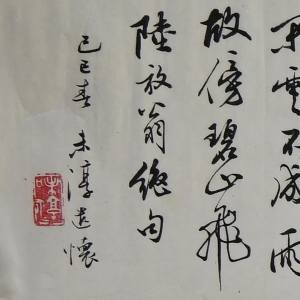 雲不成雨
故傍碧山飛
陸放翁絕句
己巳春 未淳遣懷